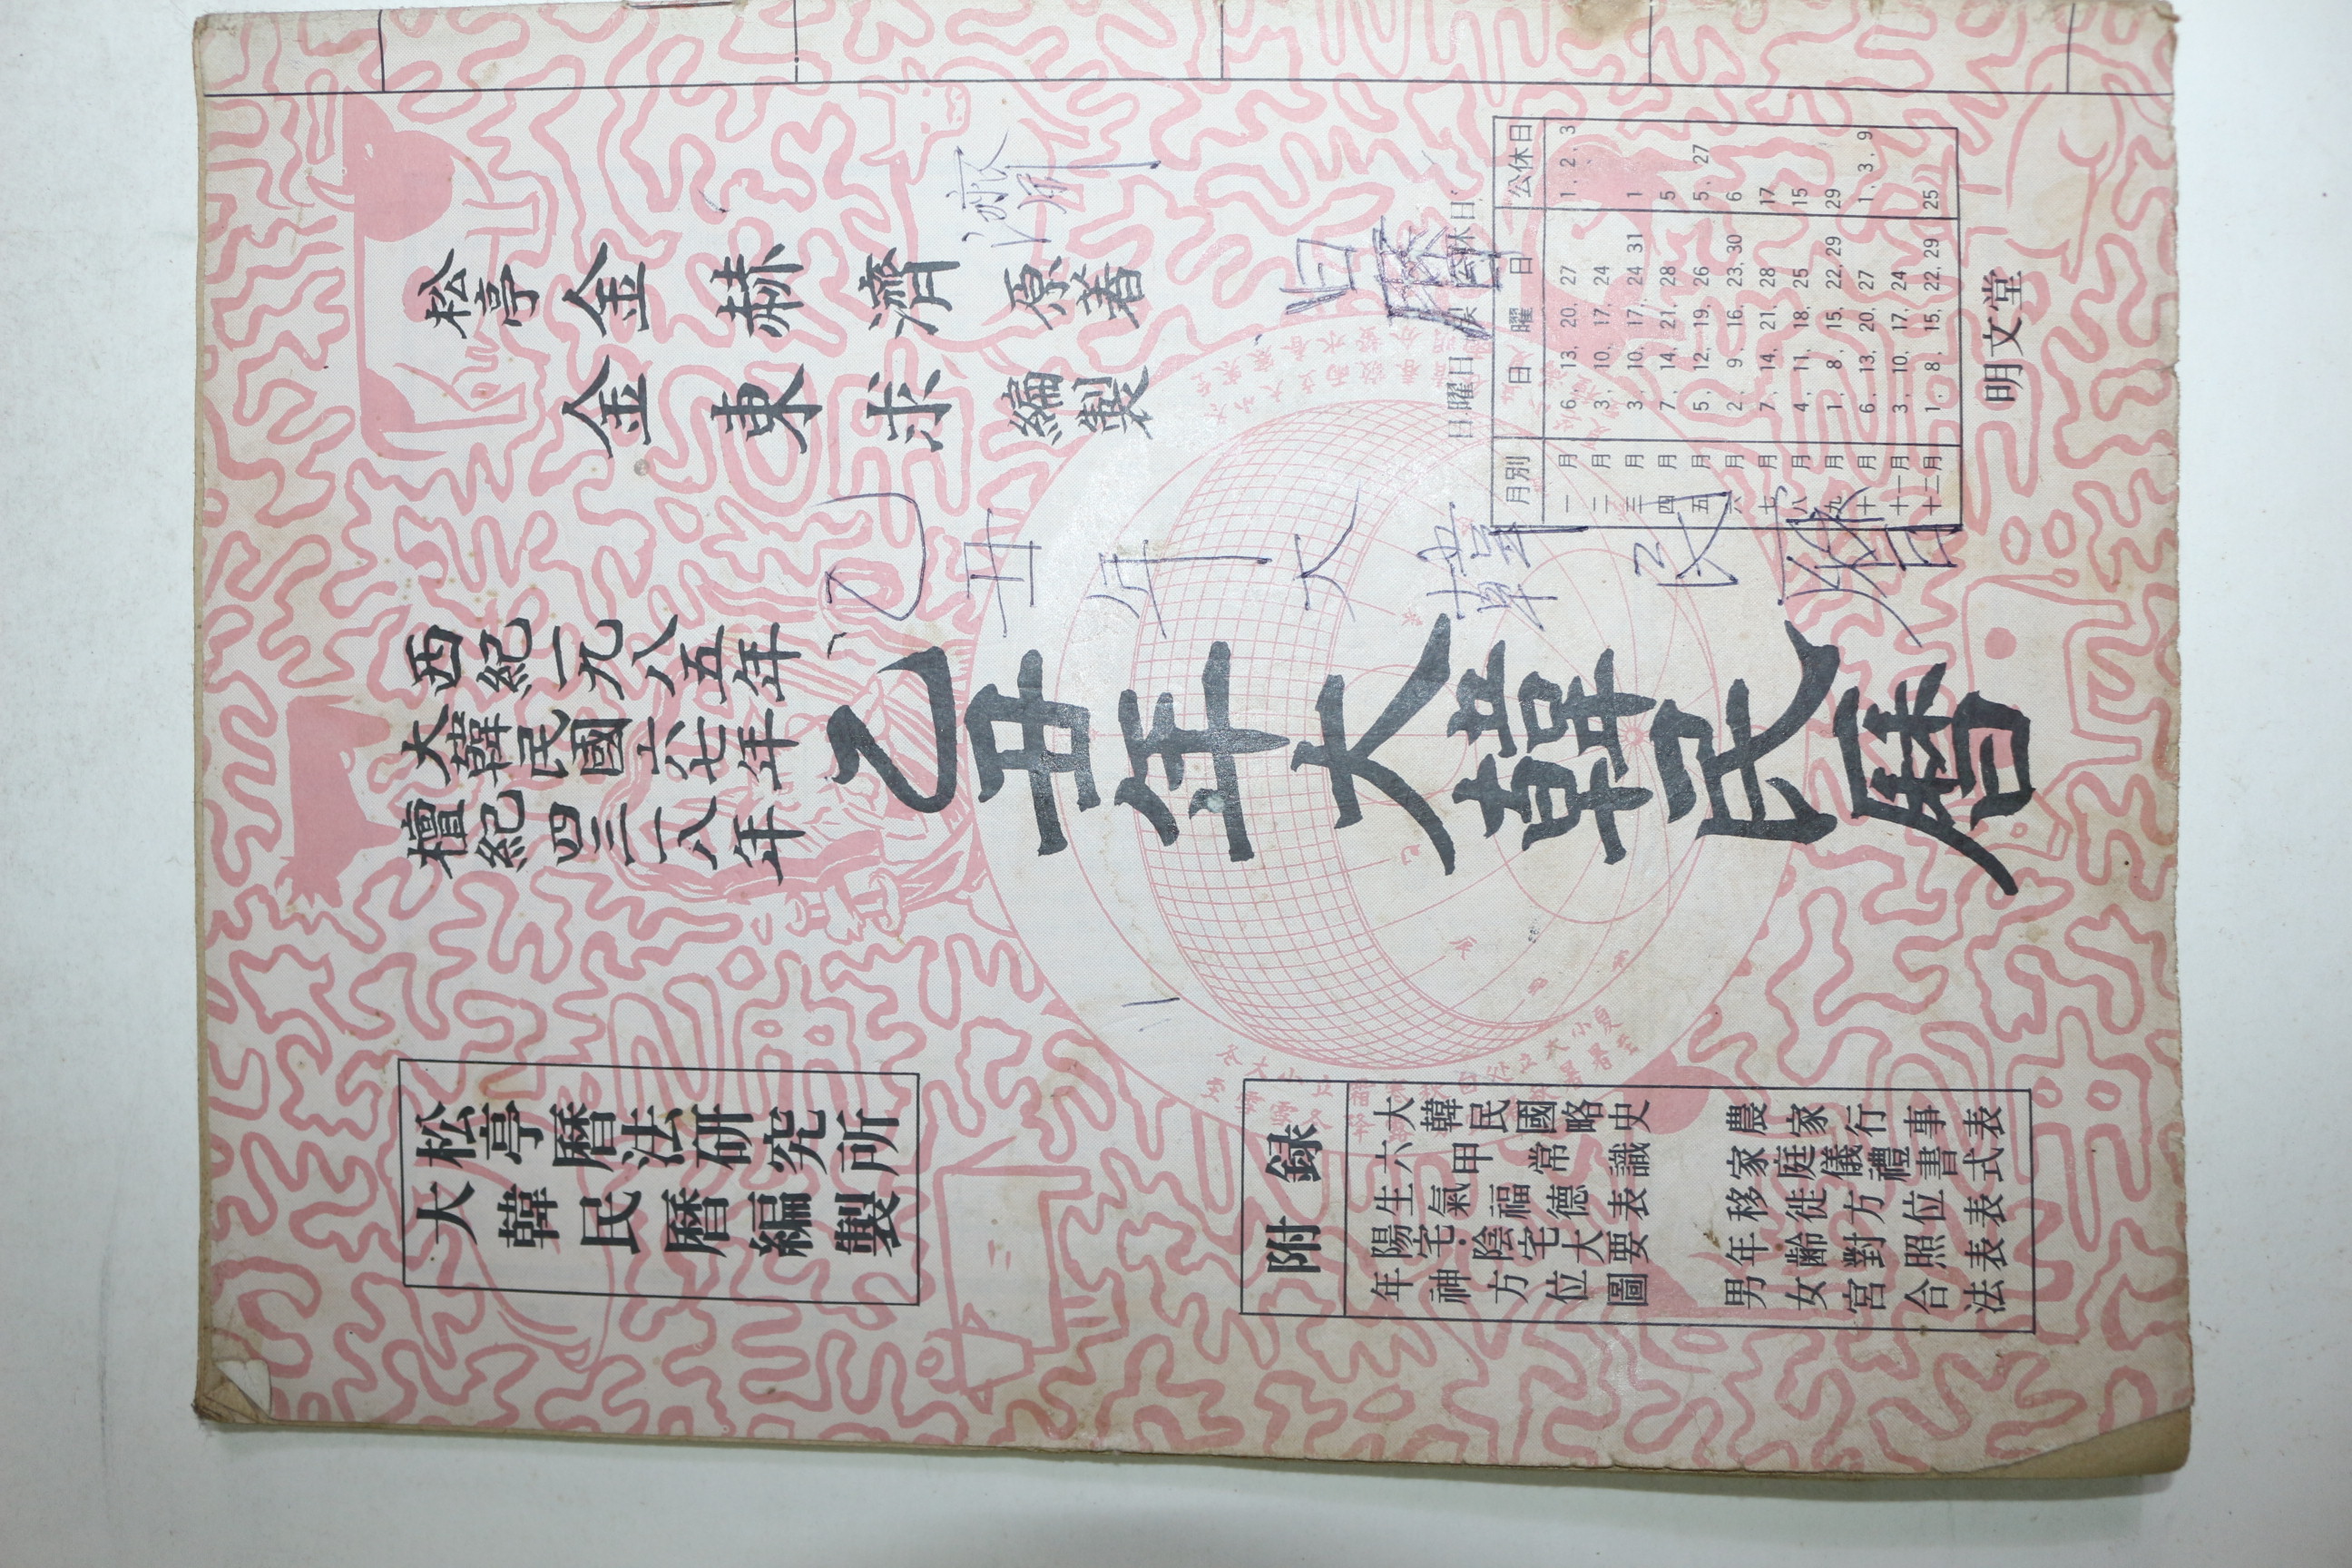 松亭 金赫濟 原著
金東求 編製
西紀一九八五年
大韓民國六七年
檀紀四三一八年
乙丑年大韓民曆
乙丑年大韓民曆
松亭曆法研究所
大韓民曆編製
日曜日 公休日
月別 日曜日 公休日
一月 6, 13, 20, 27 1, 2, 3
二月 3, 10, 17, 24
三月 3, 10, 17, 24 31 1
四月 7, 14, 21, 28 5
五月 5, 12, 19, 26 5, 27
六月 2, 9, 16, 23, 30 6
七月 7, 14, 21, 28 17
八月 4, 11, 18, 25 15
九月 1, 8, 15, 22, 29 29
十月 6, 13, 20, 27 1, 3, 9
十一月 3, 10, 17, 24
十二月 1, 8, 15, 22, 29 25
明文堂
附錄
大韓民國略史
六甲常識
生氣福德表
陽宅·陰宅大要
年神方位圖
農家行事表
家庭儀禮書式
移徙方位表
年齡對照表
男女宮合法